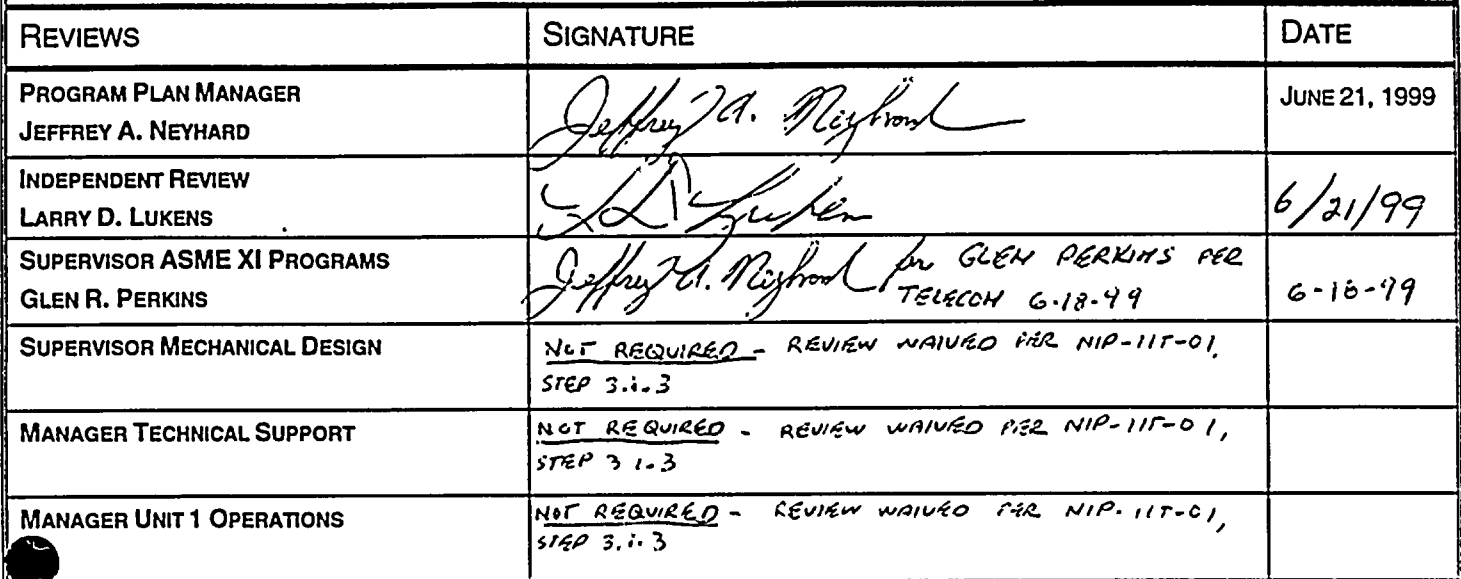 REVIEWS SIGNATURE DATE
PROGRAM PLAN MANAGER
JEFFREY A. NEYHARD
Jeffrey A. Neyhard
JUNE 21, 1999
INDEPENDENT REVIEW
LARRY D. LUKENS
LD Lukens
6/21/99
SUPERVISOR ASME XI PROGRAMS
GLEN R. PERKINS
Jeffrey A. Neyhard for GLEN PERKINS PER
TELECON 6-18-99
6-18-99
SUPERVISOR MECHANICAL DESIGN
NOT REQUIRED - REVIEW WAIVED PER NIP-IIT-01,
STEP 3.i.3
MANAGER TECHNICAL SUPPORT
NOT REQUIRED - REVIEW WAIVED PER NIP-IIT-01,
STEP 3.i.3
MANAGER UNIT 1 OPERATIONS
NOT REQUIRED - REVIEW WAIVED PER NIP-IIT-01,
STEP 3.i.3